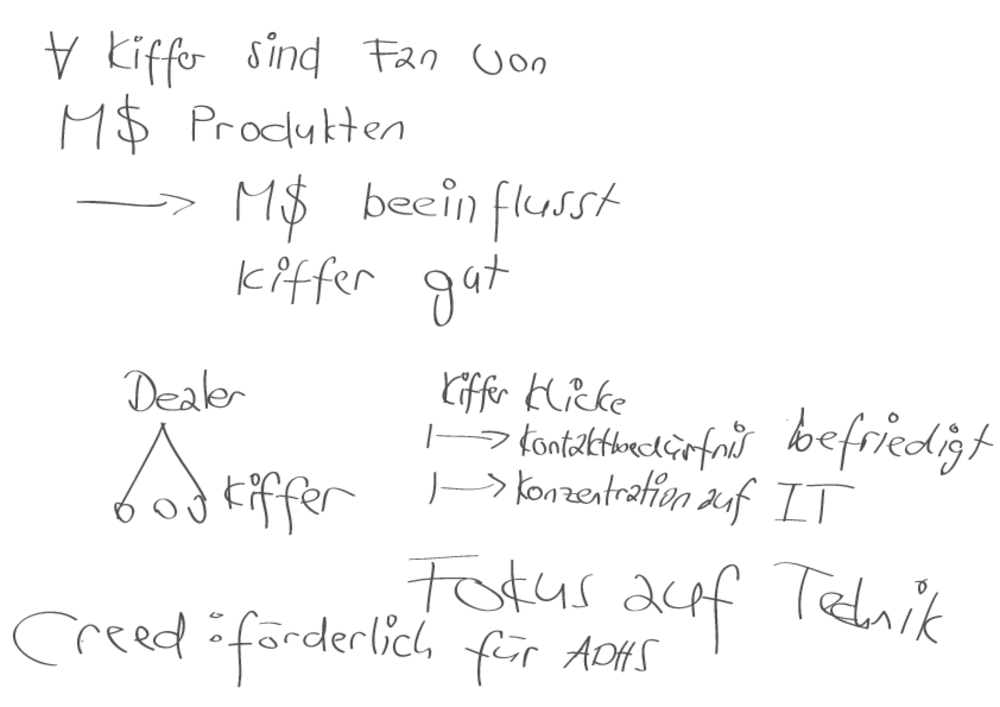 ∀ Kiffer sind Fan von
M$ Produkten
→ M$ beeinflusst
Kiffer gut
Dealer
Kiffer
Kiffer Klicke
↦ Kontaktbedürfnis befriedigt
↦ Konzentration auf IT
Fokus auf Technik
Creed: förderlich für ADHS